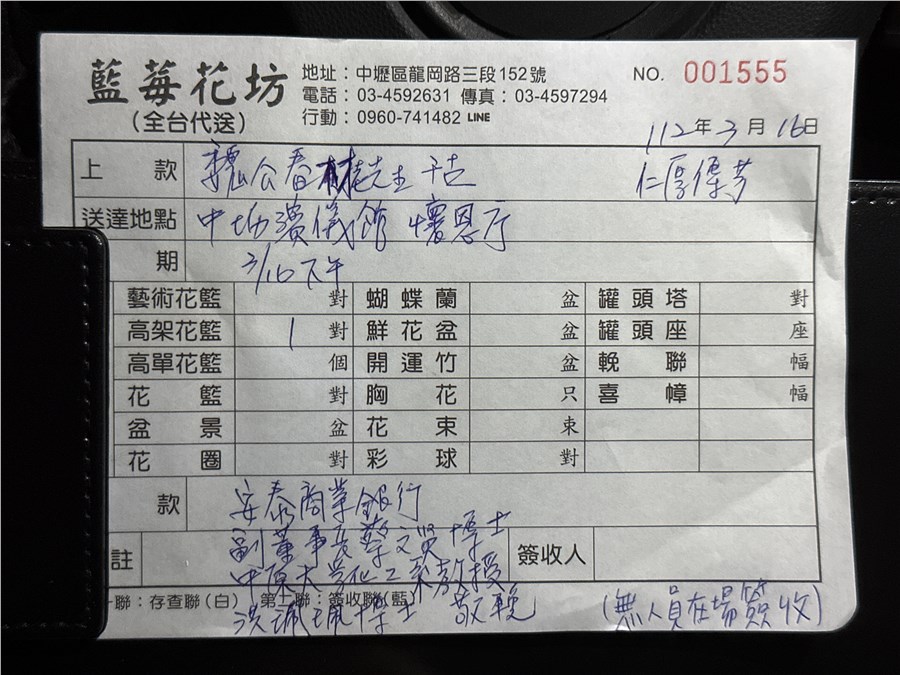 藍莓花坊
(全台代送)
地址：中壢區龍岡路三段152號
電話：03-4592631 傳真：03-4597294
行動：0960-741482 LINE
NO. 001555
112年3月16日
上款 公春 先生 千古 仁厚傳芳
送達地點 中壢殯儀館 懷恩厅
期 3/16下午
藝術花籃 對 蝴蝶蘭 盆 罐頭塔 對
高架花籃 1 對 鮮花盆 盆 罐頭座 座
高單花籃 個 開運竹 盆 輓聯 幅
花籃 對 胸花 只 喜幛 幅
盆景 盆 花束 束
花圈 對 彩球 對
款 安泰商業銀行
副董事長蔡文賢博士
註 中原大學化工系教授 簽收人
聯：存查聯(白) 第二聯：簽收聯(藍)
洪珮珮博士 敬輓 (無人員在場簽收)